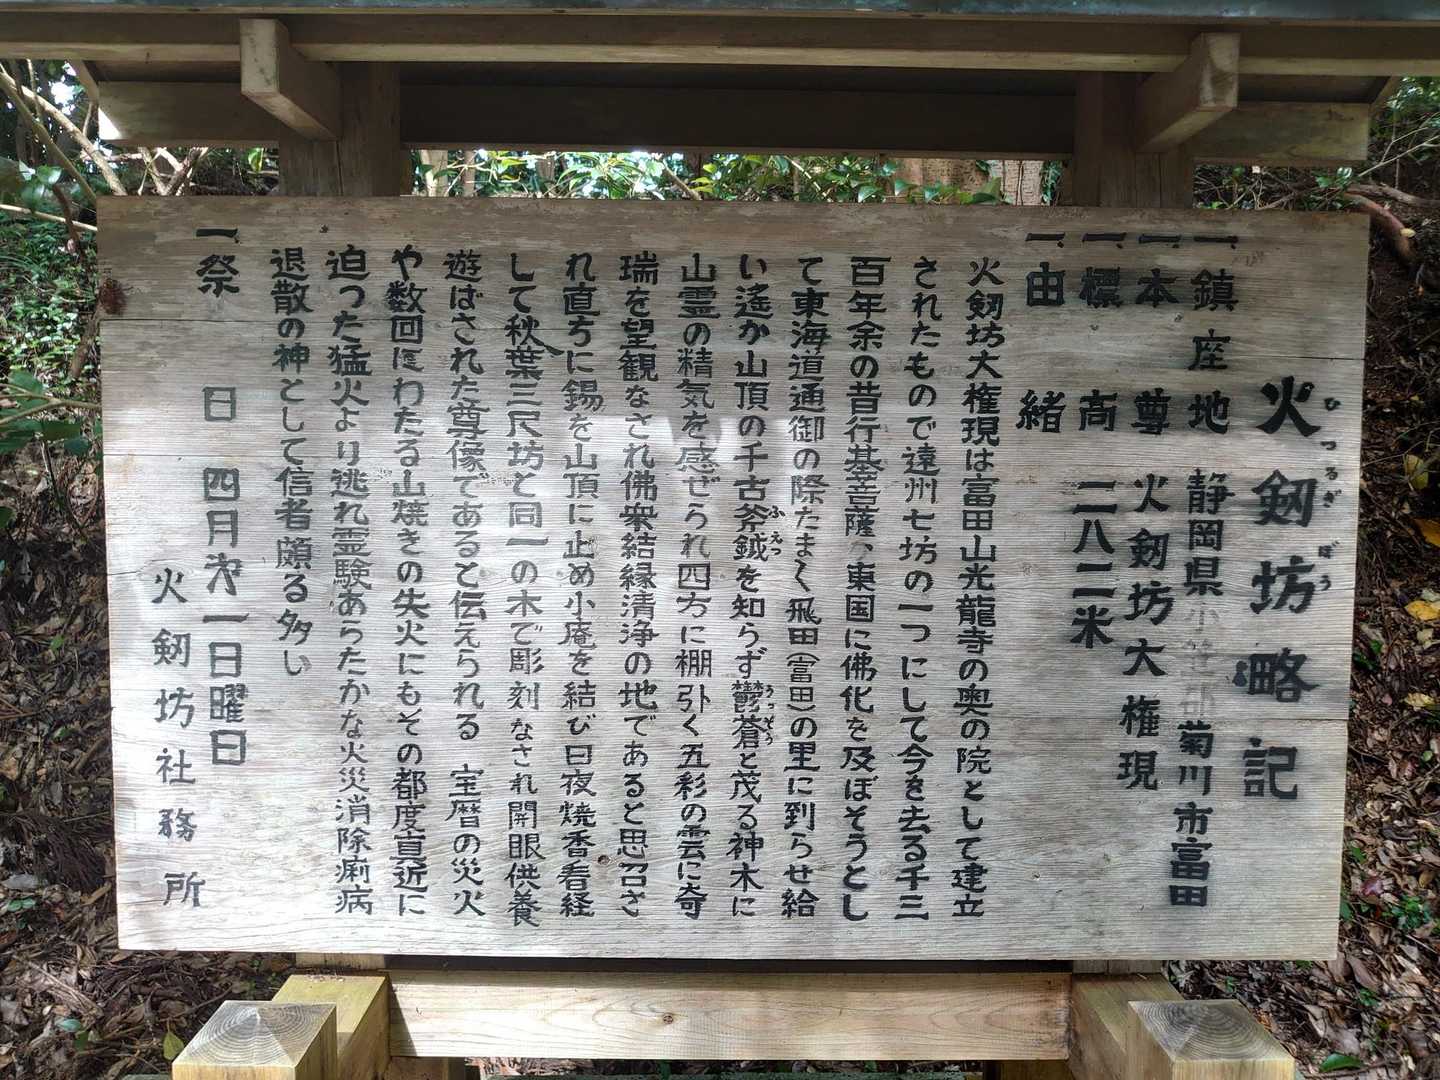 火剱坊略記
ひつるぎぼう
一鎮座地 静岡県小笠郡菊川市富田
一本尊 火剱坊大権現
一標高 二八二米
一由緒
火剱坊大権現は富田山光龍寺の奥の院として建立
されたもので遠州七坊の一つにして今を去る千三
百年余の昔行基菩薩、東国に佛化を及ぼそうとし
て東海道通御の際たまく飛田(富田)の里に到らせ給
い遙か山頂の千古斧鉞を知らず鬱蒼と茂る神木に
ふえつ
うつそう
山霊の精気を感ぜられ四方に棚引く五彩の雲に奇
瑞を望観なされ佛衆結縁清浄の地であると思召さ
れ直ちに錫を山頂に止め小庵を結び日夜焼香看経
して秋葉三尺坊と同一の木で彫刻なされ開眼供養
遊ばされた尊像であると伝えられる 宝暦の災火
や数回にわたる山焼きの失火にもその都度真近に
迫った猛火より逃れ霊験あらたかな火災消除痢病
退散の神として信者頗る多い
一祭日 四月第一日曜日
火剱坊社務所